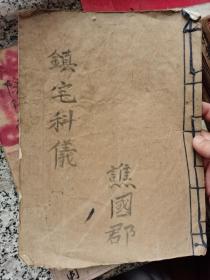 鎮宅科儀
譙國郡